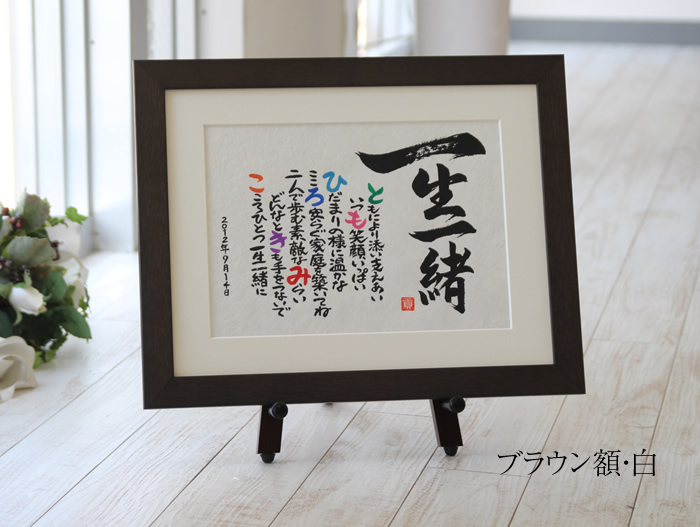 一生一緒
ともにより添い支えあい
いつも笑顔いっぱい
ひだまりの様に温かな
こころ安らぐ家庭を築いてね
二人で歩む素敵なみらい
どんなときも手をつないで
こころひとつ一生一緒に
2012年9月14日
ブラウン額・白